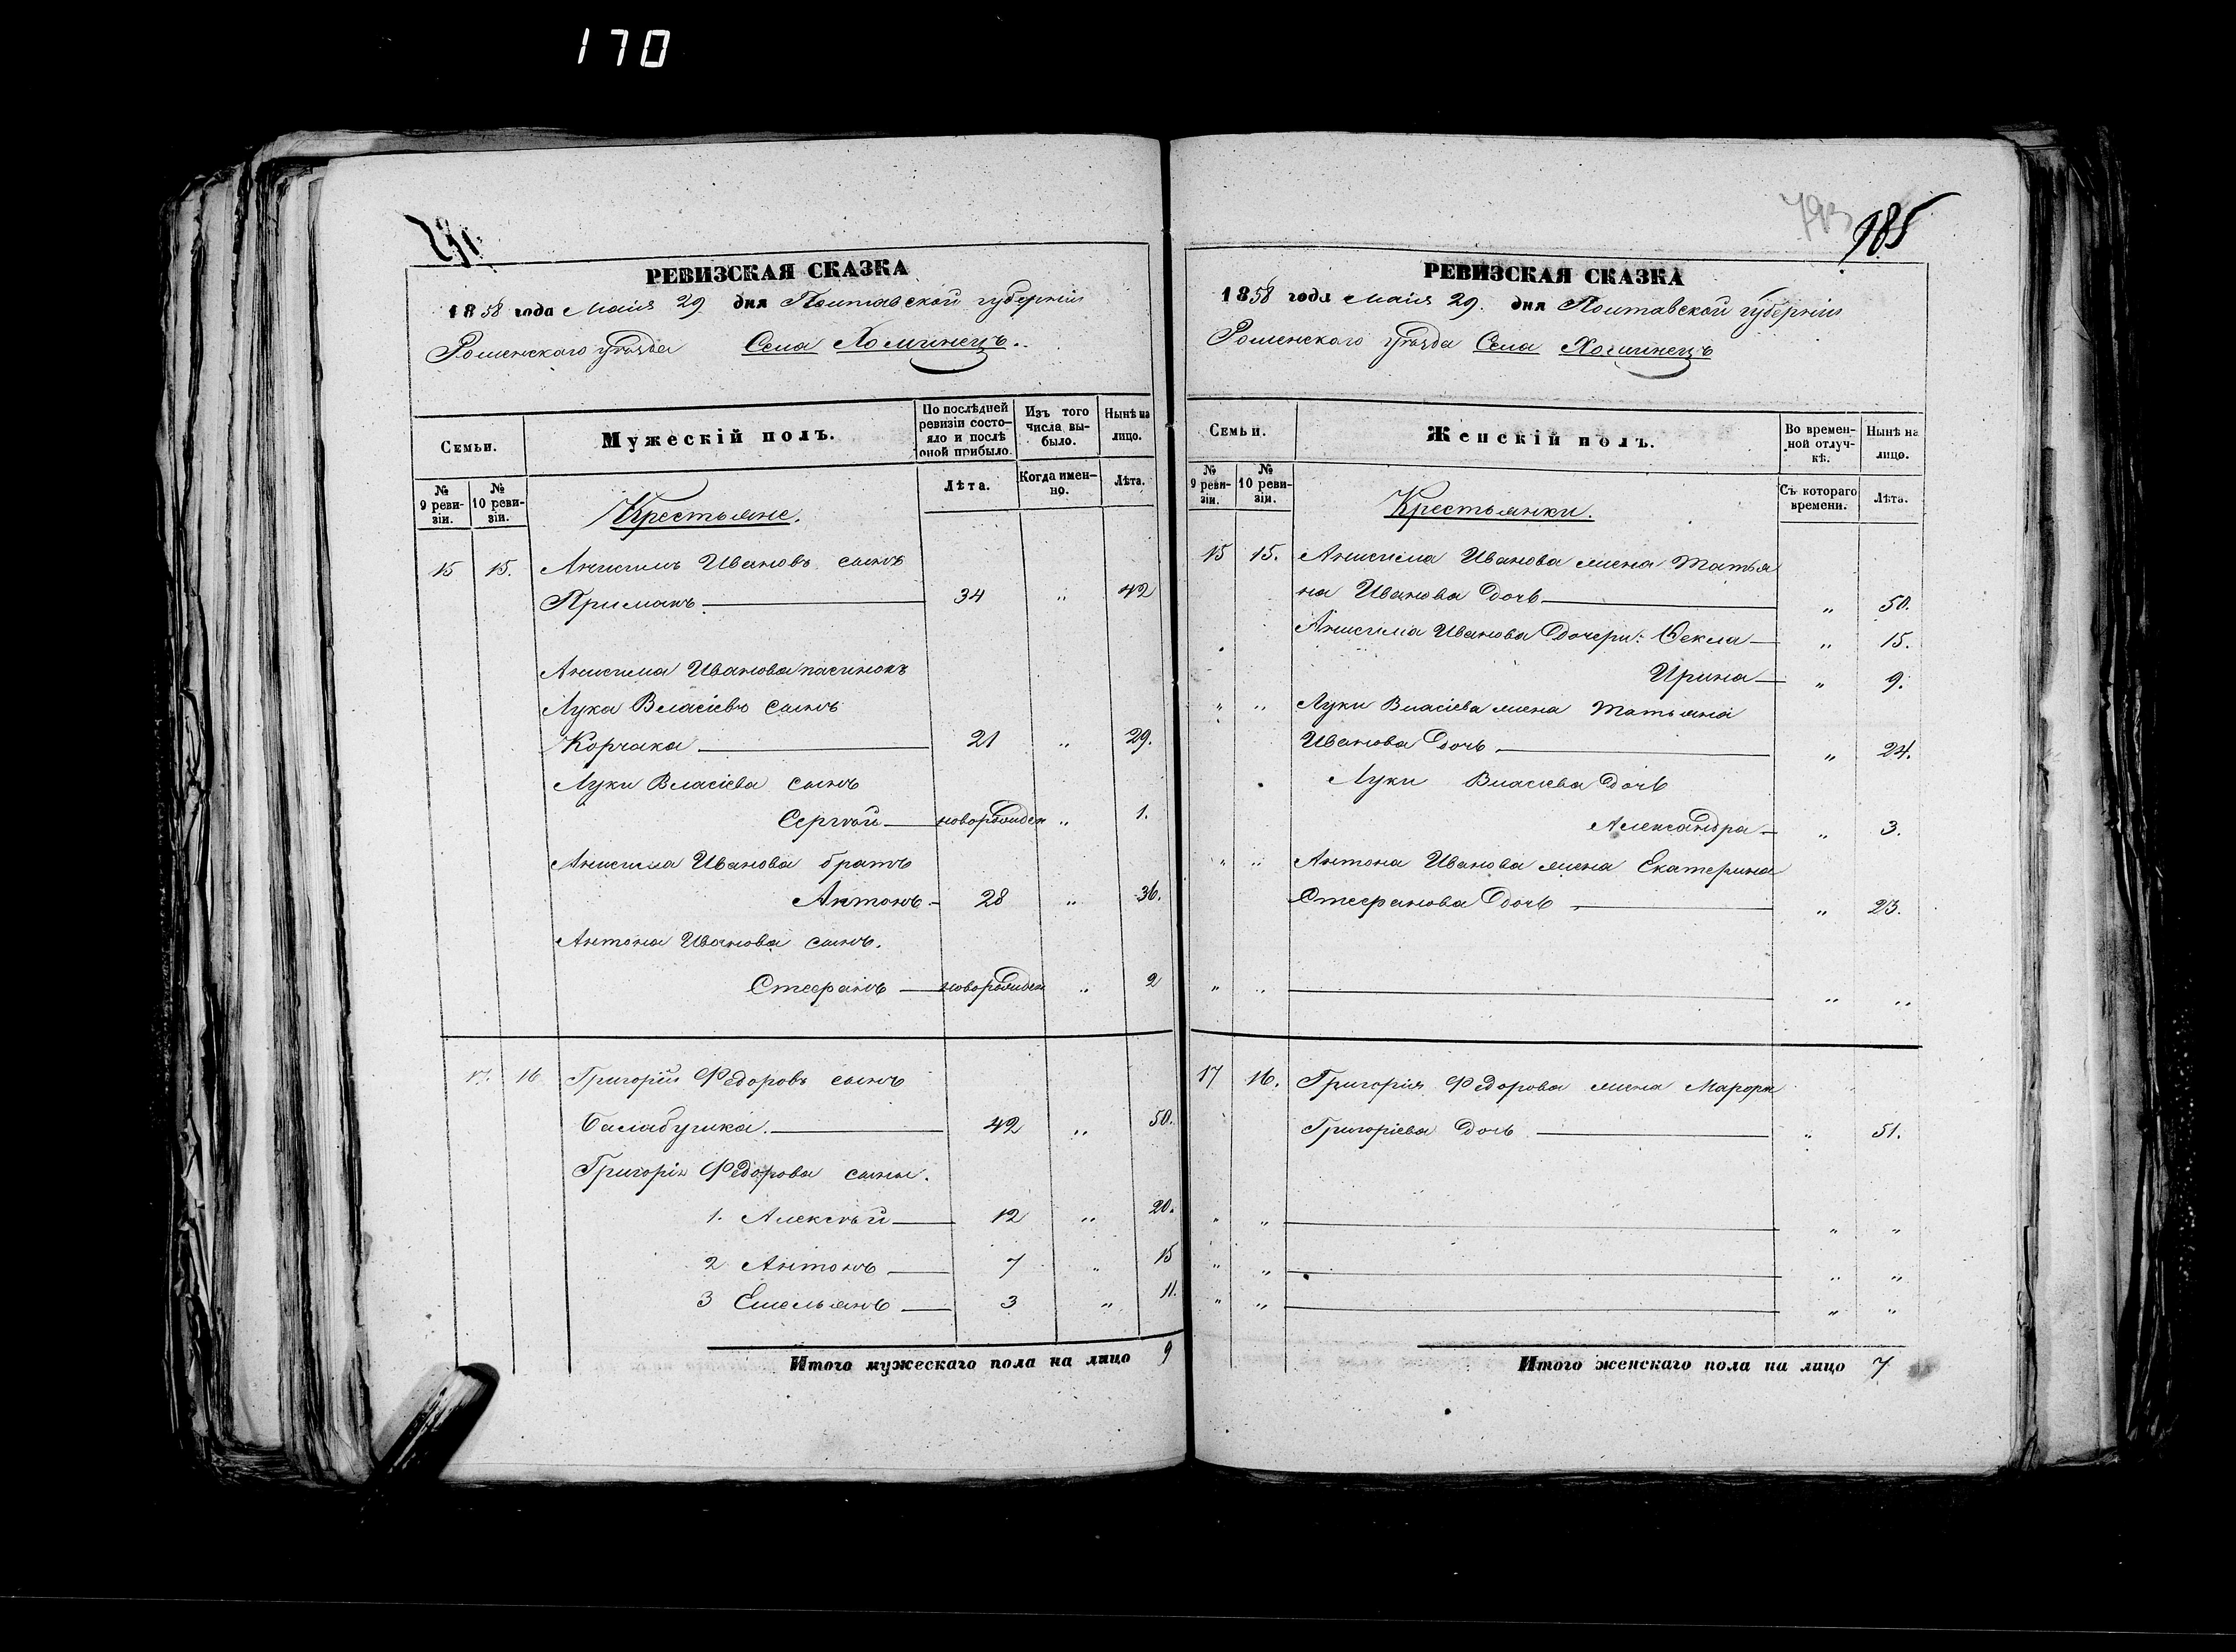 170
РЕВИЗСКАЯ СКАЗКА
1858 года Маія 29 дня Полтавской губерніи
Роменскаго уѣзда Села Хоминецъ.
Семьи.
Мужескій полъ.
По послѣдней ревизіи состо-
яло и послѣ
оной прибыло.
Изъ того
числа вы-
было.
Нынѣ на
лицо.
№
9 реви-
зіи.
№
10 реви-
зіи.
Крестьяне.
Лѣта.
Когда имен-
но.
Лѣта.
15 15. Анисимъ Ивановъ сынъ
Примакъ 34 " 42
Анисима Иванова пасинокъ
Лука Власіевъ сынъ
Корчака 21 " 29.
Луки Власіева сынъ
Сергѣй новорожден " 1.
Анисима Иванова братъ
Антонъ 28 " 36.
Антона Иванова сынъ.
Стефанъ новорожден " 2
17. 16 Григорій Федоровъ сынъ
Балабушка. 42 " 50.
Григорія Федорова сыны.
1. Алексѣй 12 " 20.
2 Антонъ 7 " 15
3 Емельянъ 3 " 11.
Итого мужескаго пола на лицо 9
793
985
РЕВИЗСКАЯ СКАЗКА
1858 года Маія 29. дня Полтавской губерніи
Роменскаго уѣзда Села Хоминецъ
Семьи.
Женскій полъ.
Во времен-
ной отлуч-
кѣ.
Нынѣ на
лицо.
№
9 реви-
зіи.
№
10 реви-
зіи.
Крестьянки.
Съ котораго
времени.
Лѣта.
15 15. Анисима Иванова жена Татья
на Иванова дочь " 50.
Анисима Иванова дочери: Фекла " 15.
Ирина " 9.
" " Луки Власіева жена Татьяна
Иванова дочь " 24.
Луки Власіева дочь
Александра " 3.
" " Антона Иванова жена Екатерина
Стефанова дочь " 23.
" " " "
17 16. Григорія Федорова жена Марфа
Григоріева дочь " 51.
" " " "
" " " "
" " " "
Итого женскаго пола на лицо 7